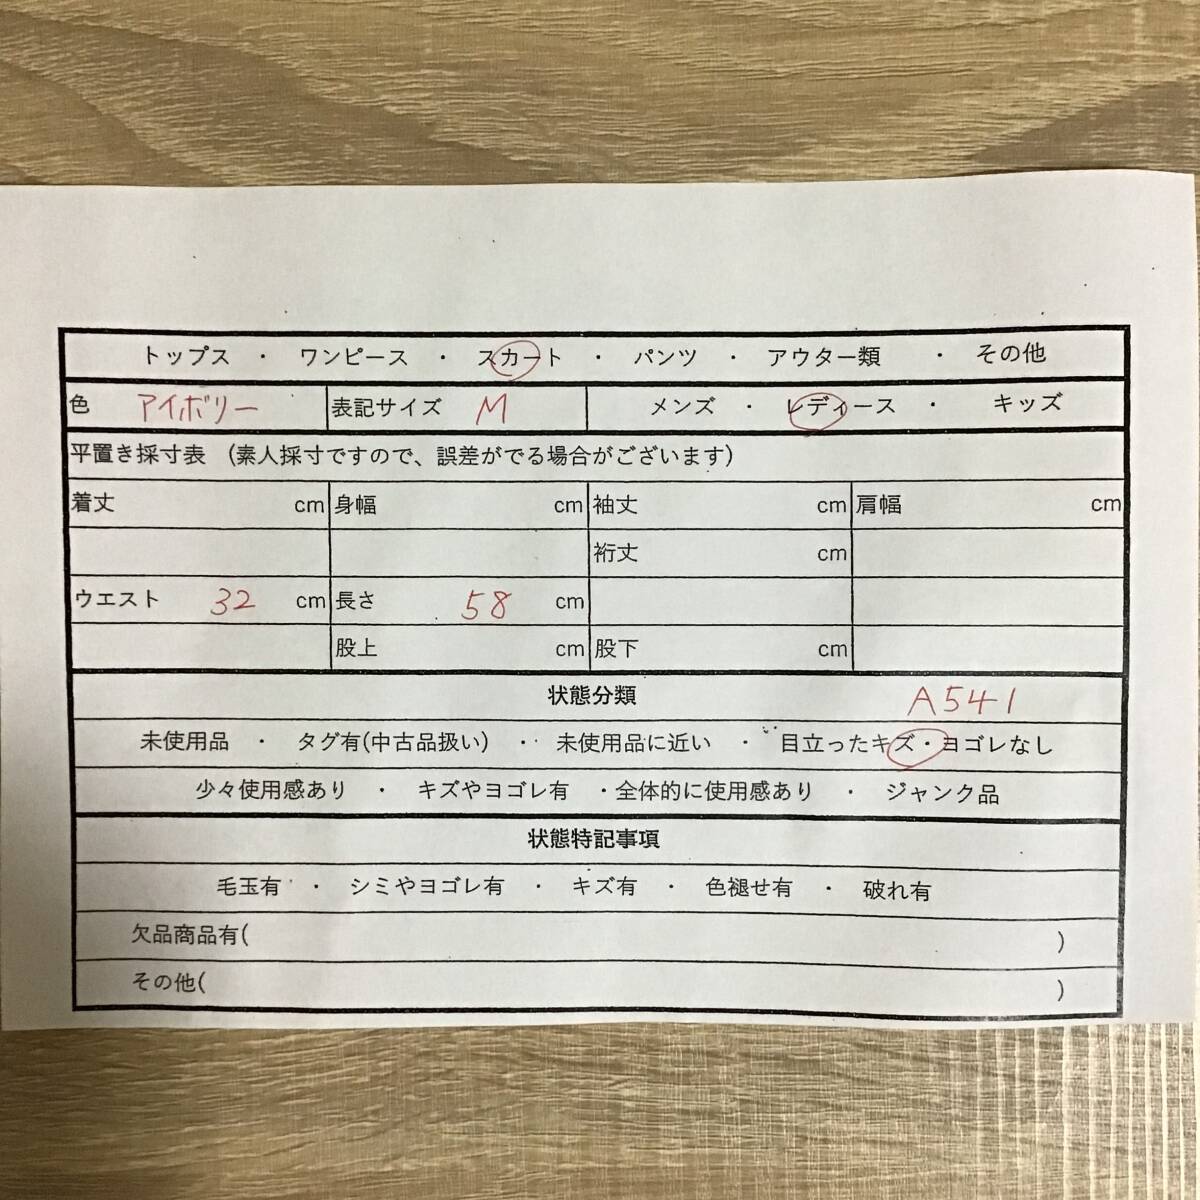 トップス ・ ワンピース ・ スカート ・ パンツ ・ アウター類 ・ その他
色 アイボリー 表記サイズ M メンズ ・ レディース ・ キッズ
平置き採寸表 (素人採寸ですので、誤差がでる場合がございます)
着丈 cm 身幅 cm 袖丈 cm 肩幅 cm
裄丈 cm
ウエスト 32 cm 長さ 58 cm
股上 cm 股下 cm
状態分類 A541
未使用品 ・ タグ有(中古品扱い) ・ 未使用品に近い ・ 目立ったキズ・ヨゴレなし
少々使用感あり ・ キズやヨゴレ有 ・全体的に使用感あり ・ ジャンク品
状態特記事項
毛玉有 ・ シミやヨゴレ有 ・ キズ有 ・ 色褪せ有 ・ 破れ有
欠品商品有( )
その他( )